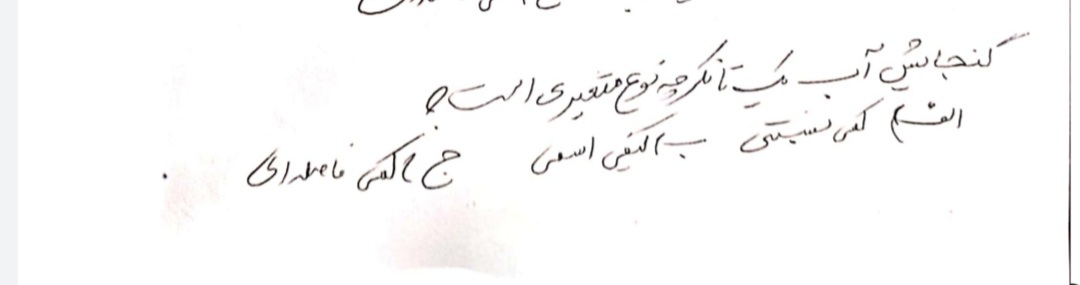 گنجایش آب یک تانکر چه نوع متغیری است؟
الف) کمی نسبتی ب) کیفی اسمی ج) کمی فاصله‌ای